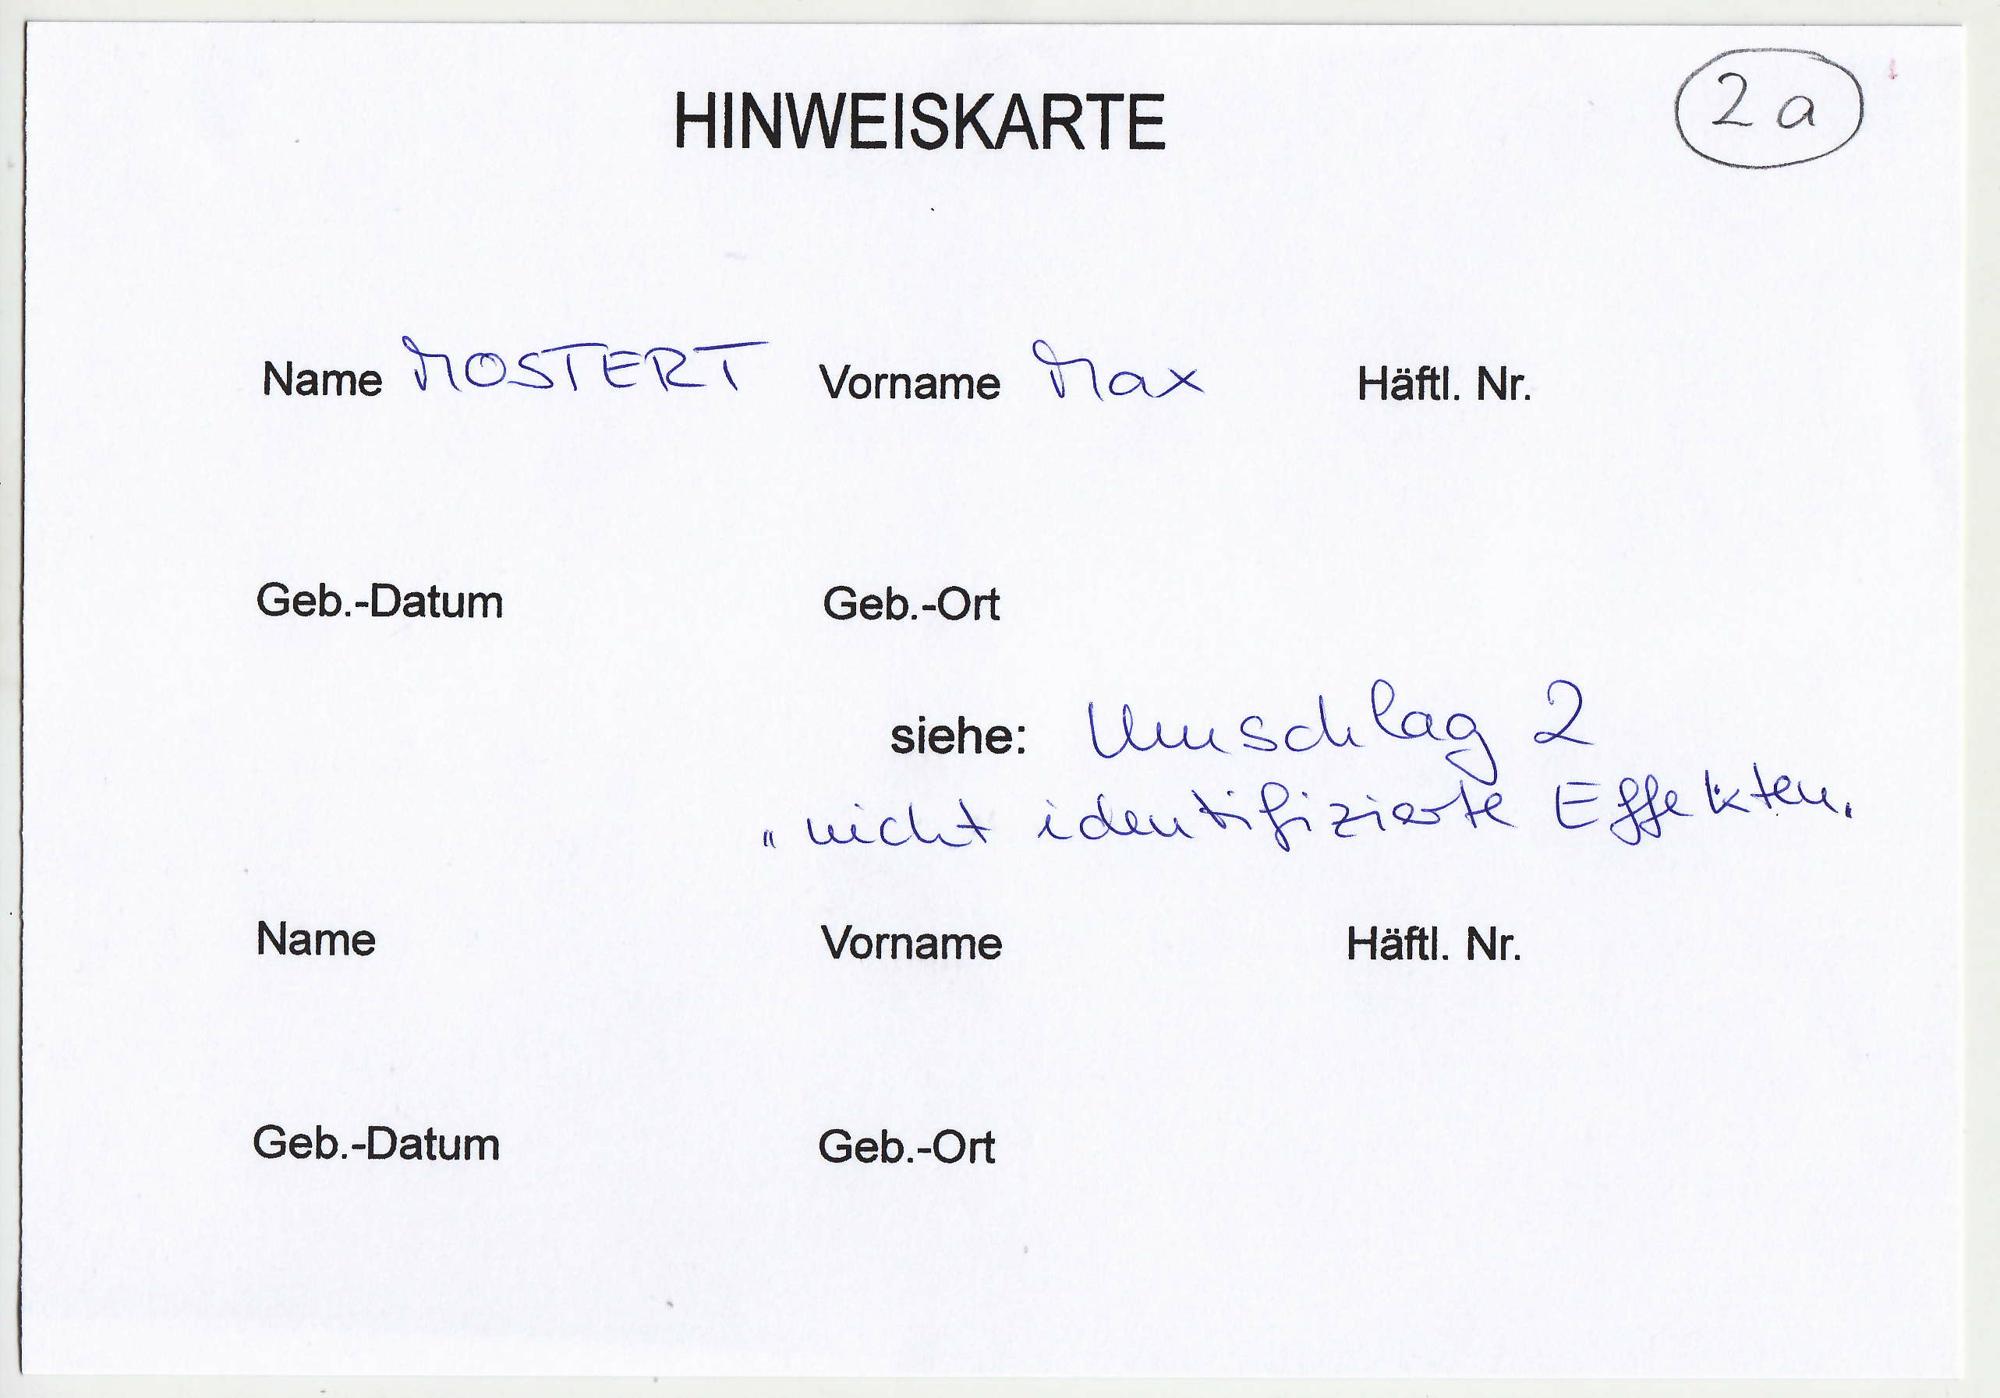 2a
HINWEISKARTE
Name MOSTERT Vorname Max Häftl. Nr.
Geb.-Datum Geb.-Ort
siehe: Umschlag 2
„nicht identifizierte Effekten.
Name Vorname Häftl. Nr.
Geb.-Datum Geb.-Ort